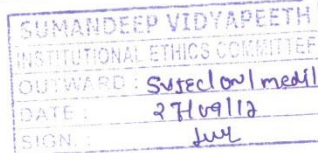 SUMANDEEP VIDYAPEETH
INSTITUTIONAL ETHICS COMMITTEE
OUTWARD :
DATE : 27/09/12
SIGN. :